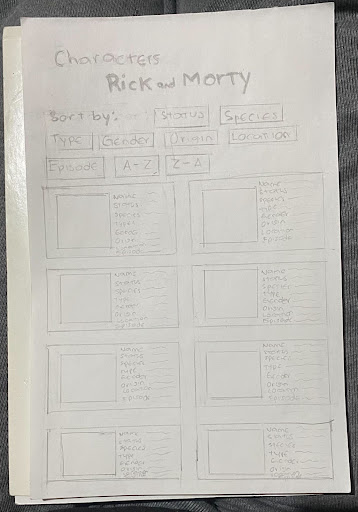 Characters
Rick and Morty
Sort by: Status Species
Type Gender Origin Location
Episode A-Z Z-A
Name
Status
Species
Type
Gender
Origin
Location
Episode
Name
Status
Species
Type
Gender
Origin
Location
Episode
Name
Status
Species
Type
Gender
Origin
Location
Episode
Name
Status
Species
Type
Gender
Origin
Location
Episode
Name
Status
Species
Type
Gender
Origin
Location
Episode
Name
Status
Species
Type
Gender
Origin
Location
Episode
Name
Status
Species
Type
Gender
Origin
Name
Status
Species
Type
Gender
Origin